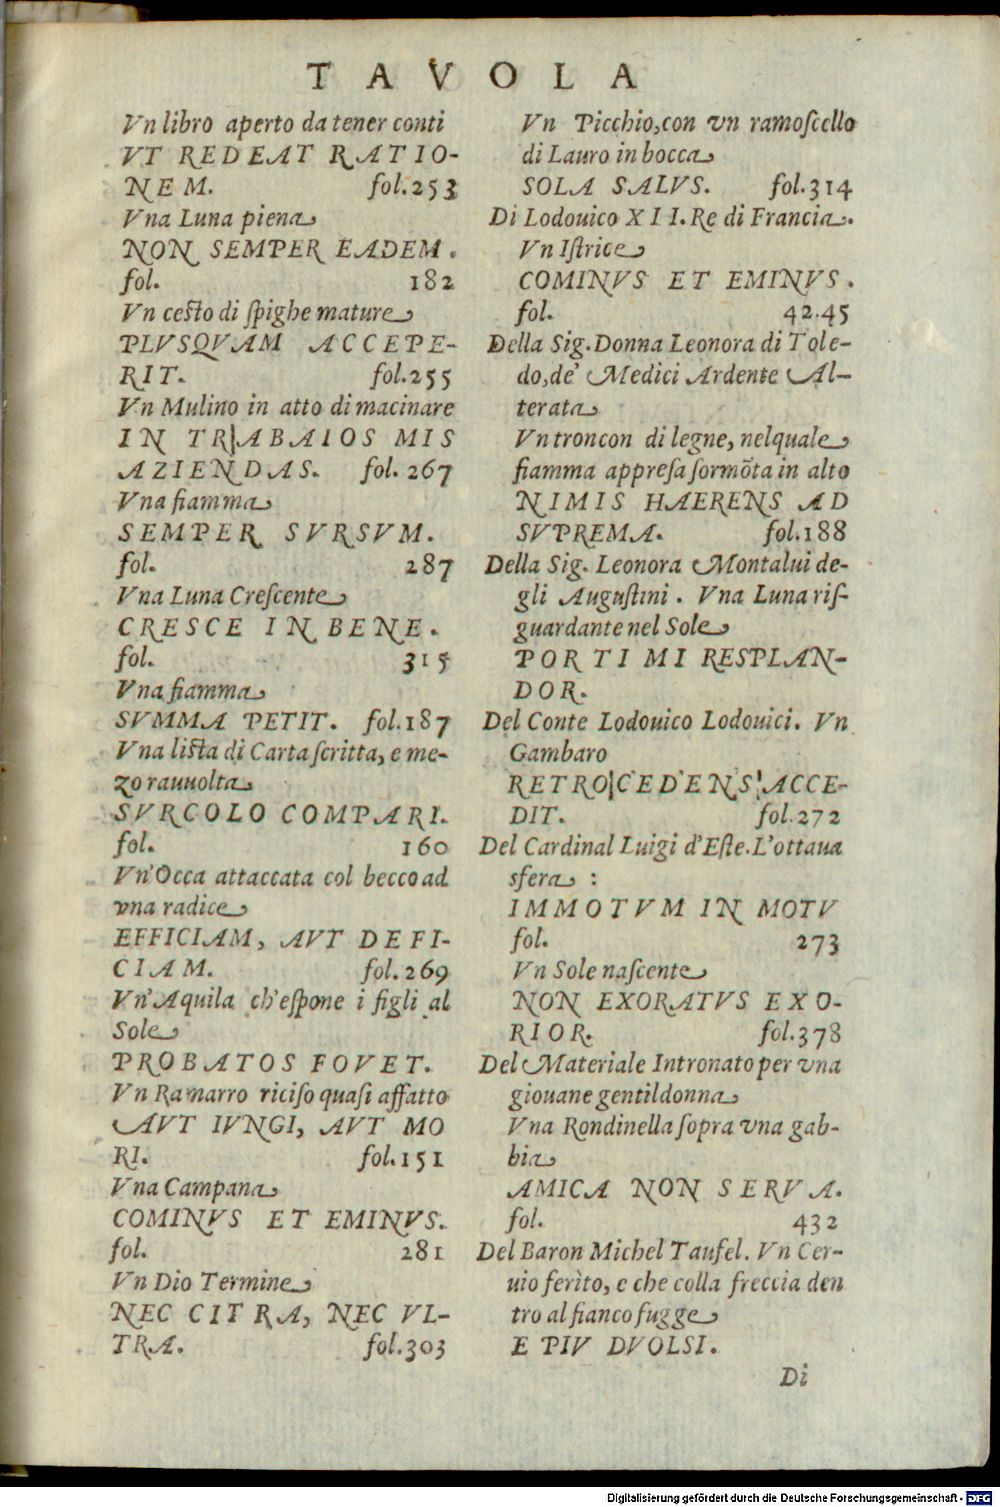 TAVOLA
Vn libro aperto da tener conti
VT REDEAT RATIO-
NEM. fol.253
Vna Luna piena
NON SEMPER EADEM.
fol. 182
Vn cesto di spighe mature
PLVSQVAM ACCEPE-
RIT. fol.255
Vn Mulino in atto di macinare
IN TRABAIOS MIS
AZIENDAS. fol.267
Vna fiamma
SEMPER SVRSVM.
fol. 287
Vna Luna Crescente
CRESCE IN BENE.
fol. 315
Vna fiamma
SVMMA PETIT. fol.187
Vna lista di Carta scritta, e me-
zo rauuolta
SVRCOLO COMPARI.
fol. 160
Vn'Occa attaccata col becco ad
vna radice
EFFICIAM, AVT DEFI-
CIAM. fol.269
Vn'Aquila ch'espone i figli al
Sole
PROBATOS FOVET.
Vn Ramarro riciso quasi affatto
AVT IVNGI, AVT MO
RI. fol.151
Vna Campana
COMINVS ET EMINVS.
fol. 281
Vn Dio Termine
NEC CITRA, NEC VL-
TRA. fol.303
Vn Picchio,con vn ramoscello
di Lauro in bocca
SOLA SALVS. fol.314
Di Lodouico XII.Re di Francia.
Vn Istrice
COMINVS ET EMINVS.
fol. 42.45
Della Sig.Donna Leonora di Tole-
do,de' Medici Ardente Al-
terata
Vn troncon di legne, nelquale
fiamma appresa sormōta in alto
NIMIS HAERENS AD
SVPREMA. fol.188
Della Sig. Leonora Montalui de-
gli Augustini. Vna Luna ris-
guardante nel Sole
POR TI MI RESPLAN-
DOR.
Del Conte Lodouico Lodouici. Vn
Gambaro
RETROCEDENS ACCE-
DIT. fol.272
Del Cardinal Luigi d'Este.L'ottaua
sfera :
IMMOTVM IN MOTV
fol. 273
Vn Sole nascente
NON EXORATVS EXO-
RIOR. fol.378
Del Materiale Intronato per vna
giouane gentildonna
Vna Rondinella sopra vna gab-
bia
AMICA NON SERVA.
fol. 432
Del Baron Michel Taufel. Vn Cer-
uio ferito, e che colla freccia den
tro al fianco fugge
E PIV DVOLSI.
Di
Digitalisierung gefördert durch die Deutsche Forschungsgemeinschaft - DFG